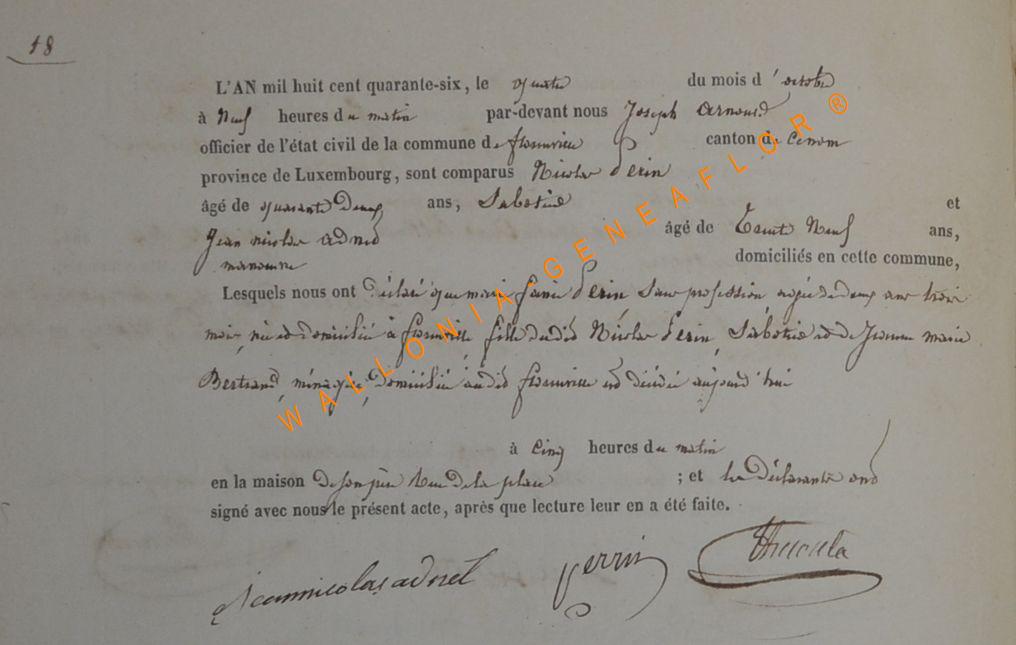 18
L'AN mil huit cent quarante-six, le quatre du mois d'octobre
à Neuf heures du matin par-devant nous Joseph Arnould
officier de l'état civil de la commune de florenville canton de
province de Luxembourg, sont comparus Nicolas Perin
âgé de quarante deux ans, Sabotier et
Jean nicolas adnet âgé de Trente Neuf ans,
manœuvre domiciliés en cette commune,
Lesquels nous ont Déclaré que marie Perin Sans profession agée de deux ans trois
mois, née et domiciliée à florenville fille dudit Nicolas Perin, Sabotier et de Jeanne marie
Bertrand, ménagère, domiciliés audit florenville est décédée aujourd'hui
à Cinq heures du matin
en la maison de son père rue de la place ; et les Déclarants ont
signé avec nous le présent acte, après que lecture leur en a été faite.
Jeannicolas adnet perrin
WALLONIA-GENEAFLOR ®